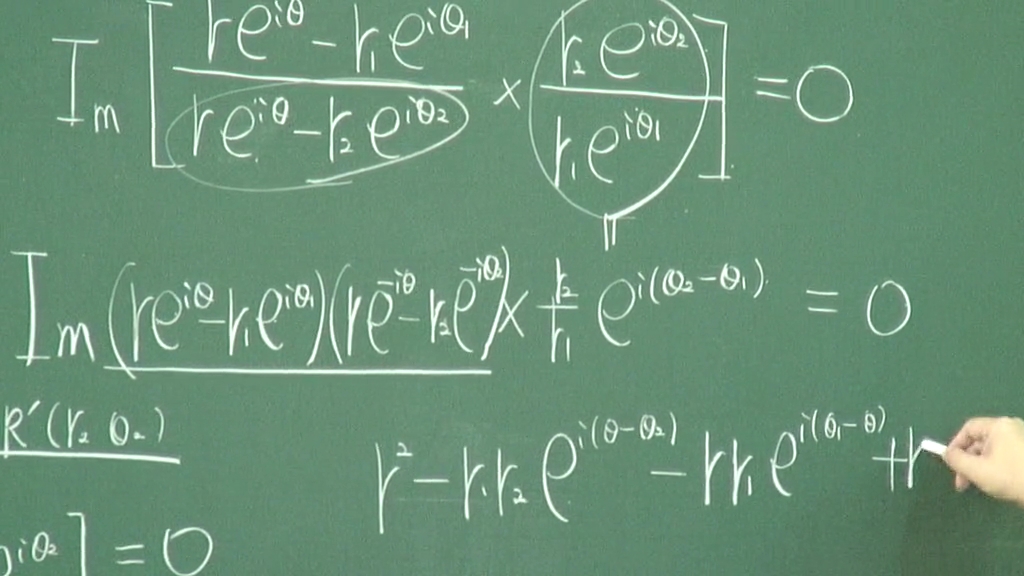 Im [ (re^{iθ} - r₁e^{iθ₁}) / (re^{iθ} - r₂e^{iθ₂}) × (r₂e^{iθ₂}) / (r₁e^{iθ₁}) ] = 0
Im (re^{iθ} - r₁e^{iθ₁})(re^{-iθ} - r₂e^{-iθ₂}) × r₂/r₁ e^{i(θ₂-θ₁)} = 0
R'(r₂ θ₂)
r² - r₁r₂e^{i(θ-θ₂)} - rr₁e^{i(θ₁-θ)} + r
iθ₂] = 0